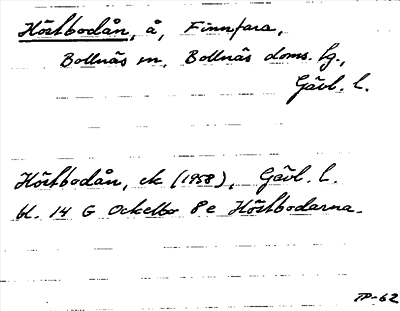 Höstbodån, å, Finnfara,
Bollnäs sn, Bollnäs doms. hg.,
Gävl. l.
Höstbodån, ek (1958), Gävl. l.
bl. 14 G Ockelbo 8 e Höstbodarna.
TP-62